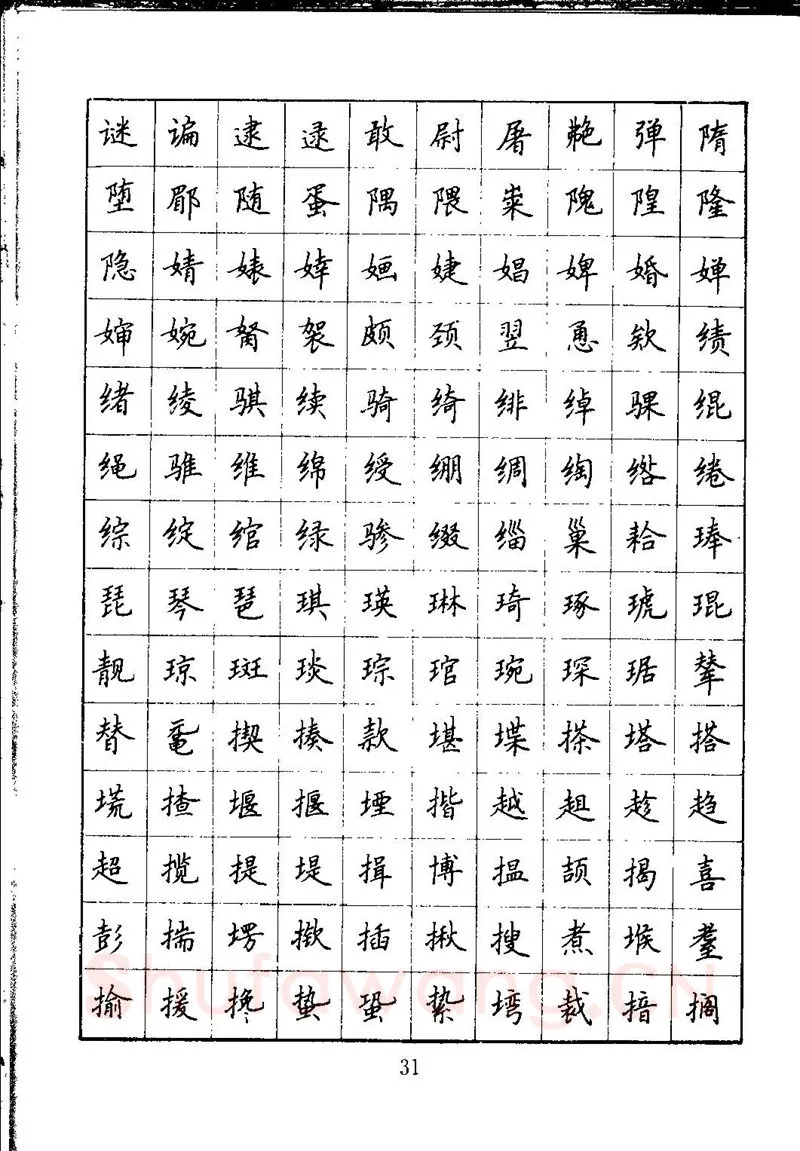 谜谝逮逯敢尉屠艴弹隋
堕郿随蛋隅隈粜隗隍隆
隐婧婊婞婳婕娼婢婚婵
婶婉胬袈颇颈翌恿欸绩
绪绫骐续骑绮绯绰骒绲
绳骓维绵绶绷绸绹绺绻
综绽绾绿骖缀缁巢耠琫
琵琴琶琪瑛琳琦琢琥琨
靓琼斑琰琮琯琬琛琚辇
替鼋揳揍款堪堞搽塔搭
塃揸堰揠堙揩越趄趁趋
超揽提堤揖博揾颉揭喜
彭揣塄揿插揪搜煮堠耋
揄援搀蛰蛩絷塆裁揞搁
Shufawang.CN
31